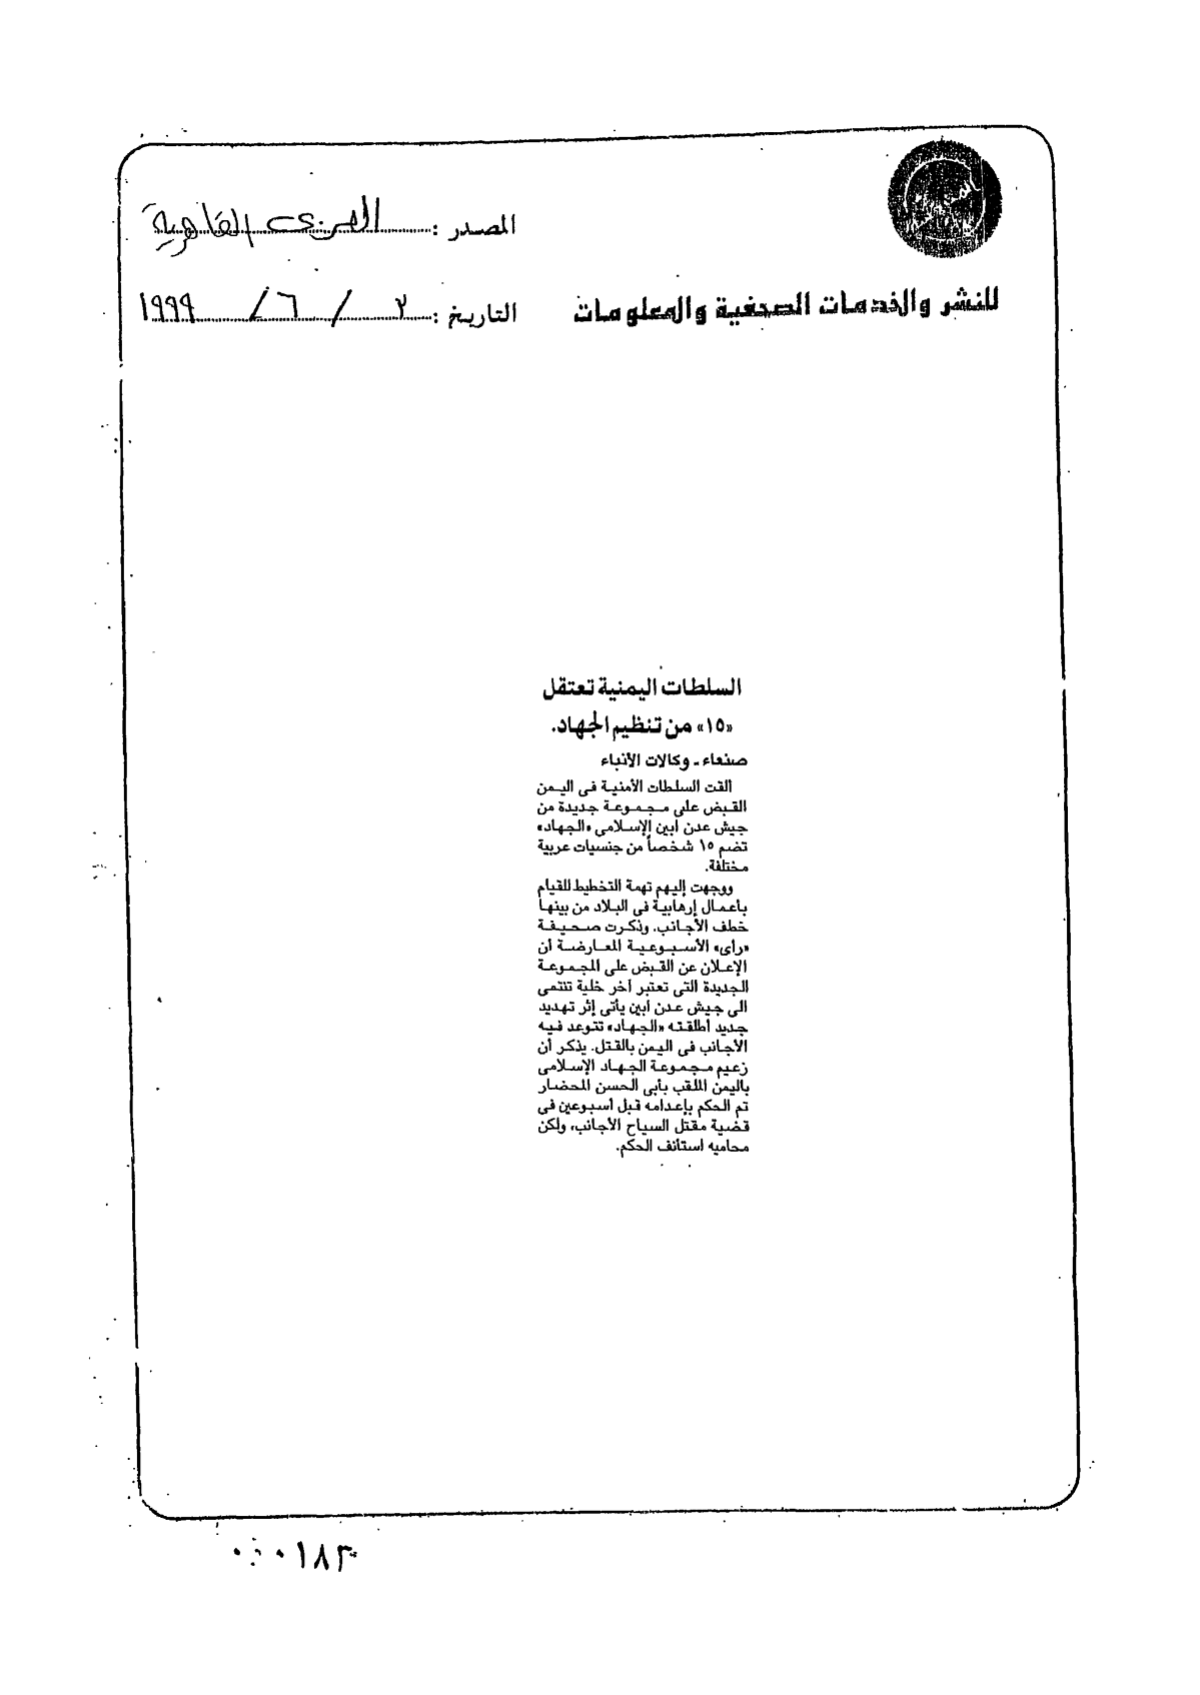 المصدر : العربى القاهرية
للنشر والخدمات الصحفية والمعلومات
التاريخ : ٢ / ٦ / ١٩٩٩
السلطات اليمنية تعتقل
«١٥» من تنظيم الجهاد.
صنعاء ـ وكالات الأنباء
القت السلطات الأمنية فى اليمن
القبض على مجموعة جديدة من
جيش عدن أبين الإسلامى «الجهاد»
تضم ١٥ شخصاً من جنسيات عربية
مختلفة.
ووجهت إليهم تهمة التخطيط للقيام
بأعمال إرهابية فى البلاد من بينها
خطف الأجانب. وذكرت صحيفة
«رأى» الأسبوعية المعارضة أن
الإعلان عن القبض على المجموعة
الجديدة التى تعتبر أخر خلية تنتمى
الى جيش عدن أبين يأتى إثر تهديد
جديد أطلقته «الجهاد» تتوعد فيه
الأجانب فى اليمن بالقتل. يذكر أن
زعيم مجموعة الجهاد الإسلامى
باليمن الملقب بأبى الحسن المحضار
تم الحكم بإعدامه قبل أسبوعين فى
قضية مقتل السياح الأجانب، ولكن
محاميه استأنف الحكم.